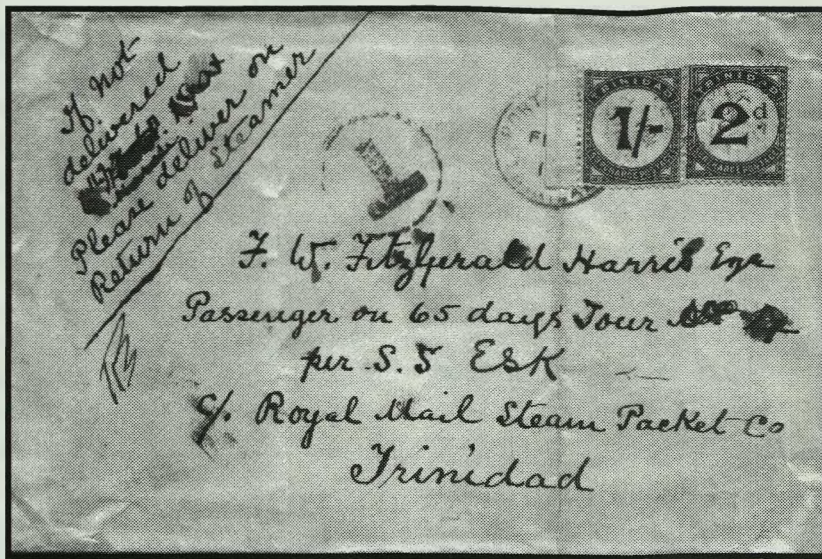 If not
delivered
Please deliver on
Return of Steamer
T
PORT
TRINIDAD
1/-
TRINIDAD
2d
F. W. Fitzgerald Harris Esqr
Passenger on 65 days Tour
per S.S ESK
c/. Royal Mail Steam Packet Co
Trinidad